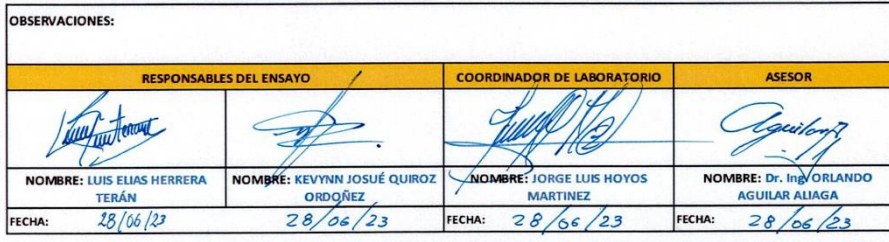 OBSERVACIONES:
RESPONSABLES DEL ENSAYO COORDINADOR DE LABORATORIO ASESOR
NOMBRE: LUIS ELIAS HERRERA TERÁN
NOMBRE: KEVYNN JOSUÉ QUIROZ ORDOÑEZ
NOMBRE: JORGE LUIS HOYOS MARTINEZ
NOMBRE: Dr. Ing. ORLANDO AGUILAR ALIAGA
FECHA: 28/06/23 28/06/23 FECHA: 28/06/23 FECHA: 28/06/23